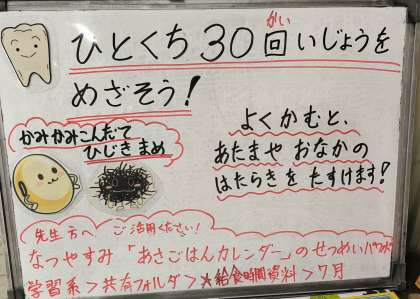 ひとくち30回いじょうを
かい
めざそう!
かみかみこんだて
ひじき まめ
よくかむと、
あたまや おなかの
はたらきを たすけます!
先生方へ ご活用ください!
なつやすみ「あさごはんカレンダー」のせつめいパワポ
学習系>共有フォルダ>★給食時間資料>7月